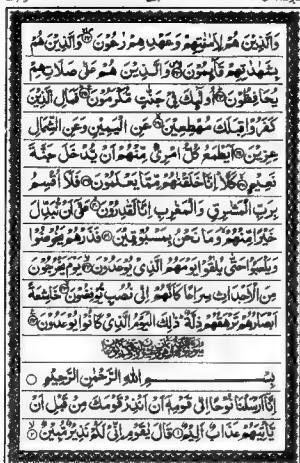 وَالَّذِينَ هُمْ لِأَمَانَاتِهِمْ وَعَهْدِهِمْ رَاعُونَ ۝ وَالَّذِينَ هُمْ
بِشَهَادَاتِهِمْ قَائِمُونَ ۝ وَالَّذِينَ هُمْ عَلَىٰ صَلَاتِهِمْ
يُحَافِظُونَ ۝ أُولَٰئِكَ فِي جَنَّاتٍ مُّكْرَمُونَ ۝ فَمَالِ الَّذِينَ
كَفَرُوا قِبَلَكَ مُهْطِعِينَ ۝ عَنِ الْيَمِينِ وَعَنِ الشِّمَالِ
عِزِينَ ۝ أَيَطْمَعُ كُلُّ امْرِئٍ مِّنْهُمْ أَن يُدْخَلَ جَنَّةَ
نَعِيمٍ ۝ كَلَّا إِنَّا خَلَقْنَاهُم مِّمَّا يَعْلَمُونَ ۝ فَلَا أُقْسِمُ
بِرَبِّ الْمَشَارِقِ وَالْمَغَارِبِ إِنَّا لَقَادِرُونَ ۝ عَلَىٰ أَن نُّبَدِّلَ
خَيْرًا مِّنْهُمْ وَمَا نَحْنُ بِمَسْبُوقِينَ ۝ فَذَرْهُمْ يَخُوضُوا
وَيَلْعَبُوا حَتَّىٰ يُلَاقُوا يَوْمَهُمُ الَّذِي يُوعَدُونَ ۝ يَوْمَ يَخْرُجُونَ
مِنَ الْأَجْدَاثِ سِرَاعًا كَأَنَّهُمْ إِلَىٰ نُصُبٍ يُوفِضُونَ ۝ خَاشِعَةً
أَبْصَارُهُمْ تَرْهَقُهُمْ ذِلَّةٌ ذَٰلِكَ الْيَوْمُ الَّذِي كَانُوا يُوعَدُونَ ۝
بِسْمِ اللَّهِ الرَّحْمَٰنِ الرَّحِيمِ ۝
إِنَّا أَرْسَلْنَا نُوحًا إِلَىٰ قَوْمِهِ أَنْ أَنذِرْ قَوْمَكَ مِن قَبْلِ أَن
يَأْتِيَهُمْ عَذَابٌ أَلِيمٌ ۝ قَالَ يَا قَوْمِ إِنِّي لَكُمْ نَذِيرٌ مُّبِينٌ ۝